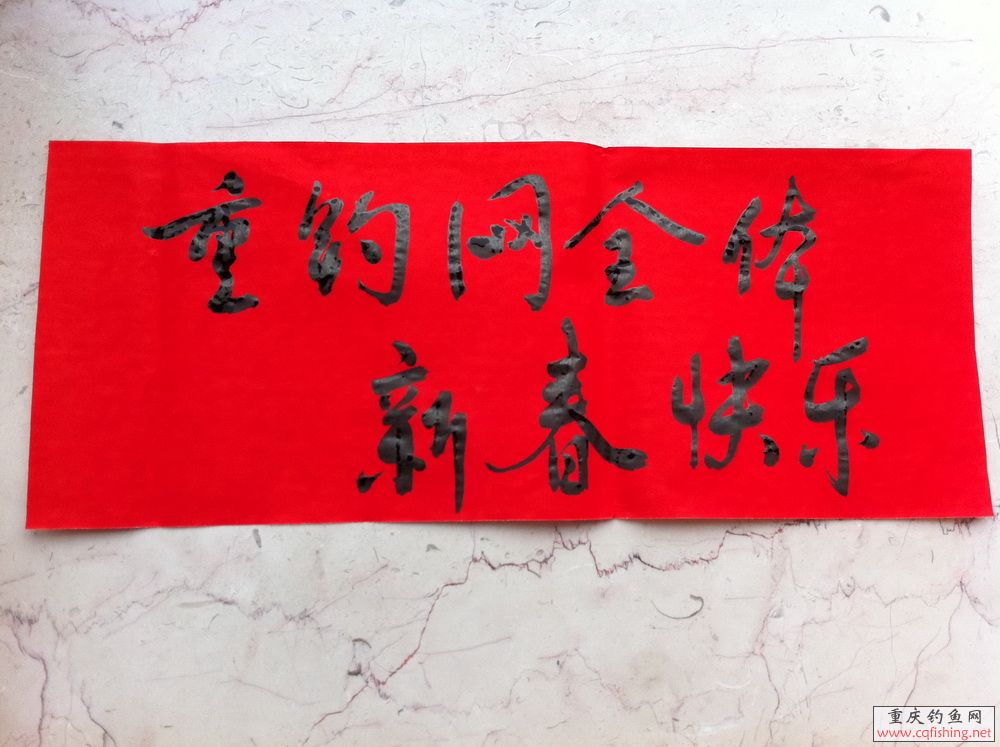 重钓网全体
新春快乐
重庆钓鱼网
www.cqfishing.net